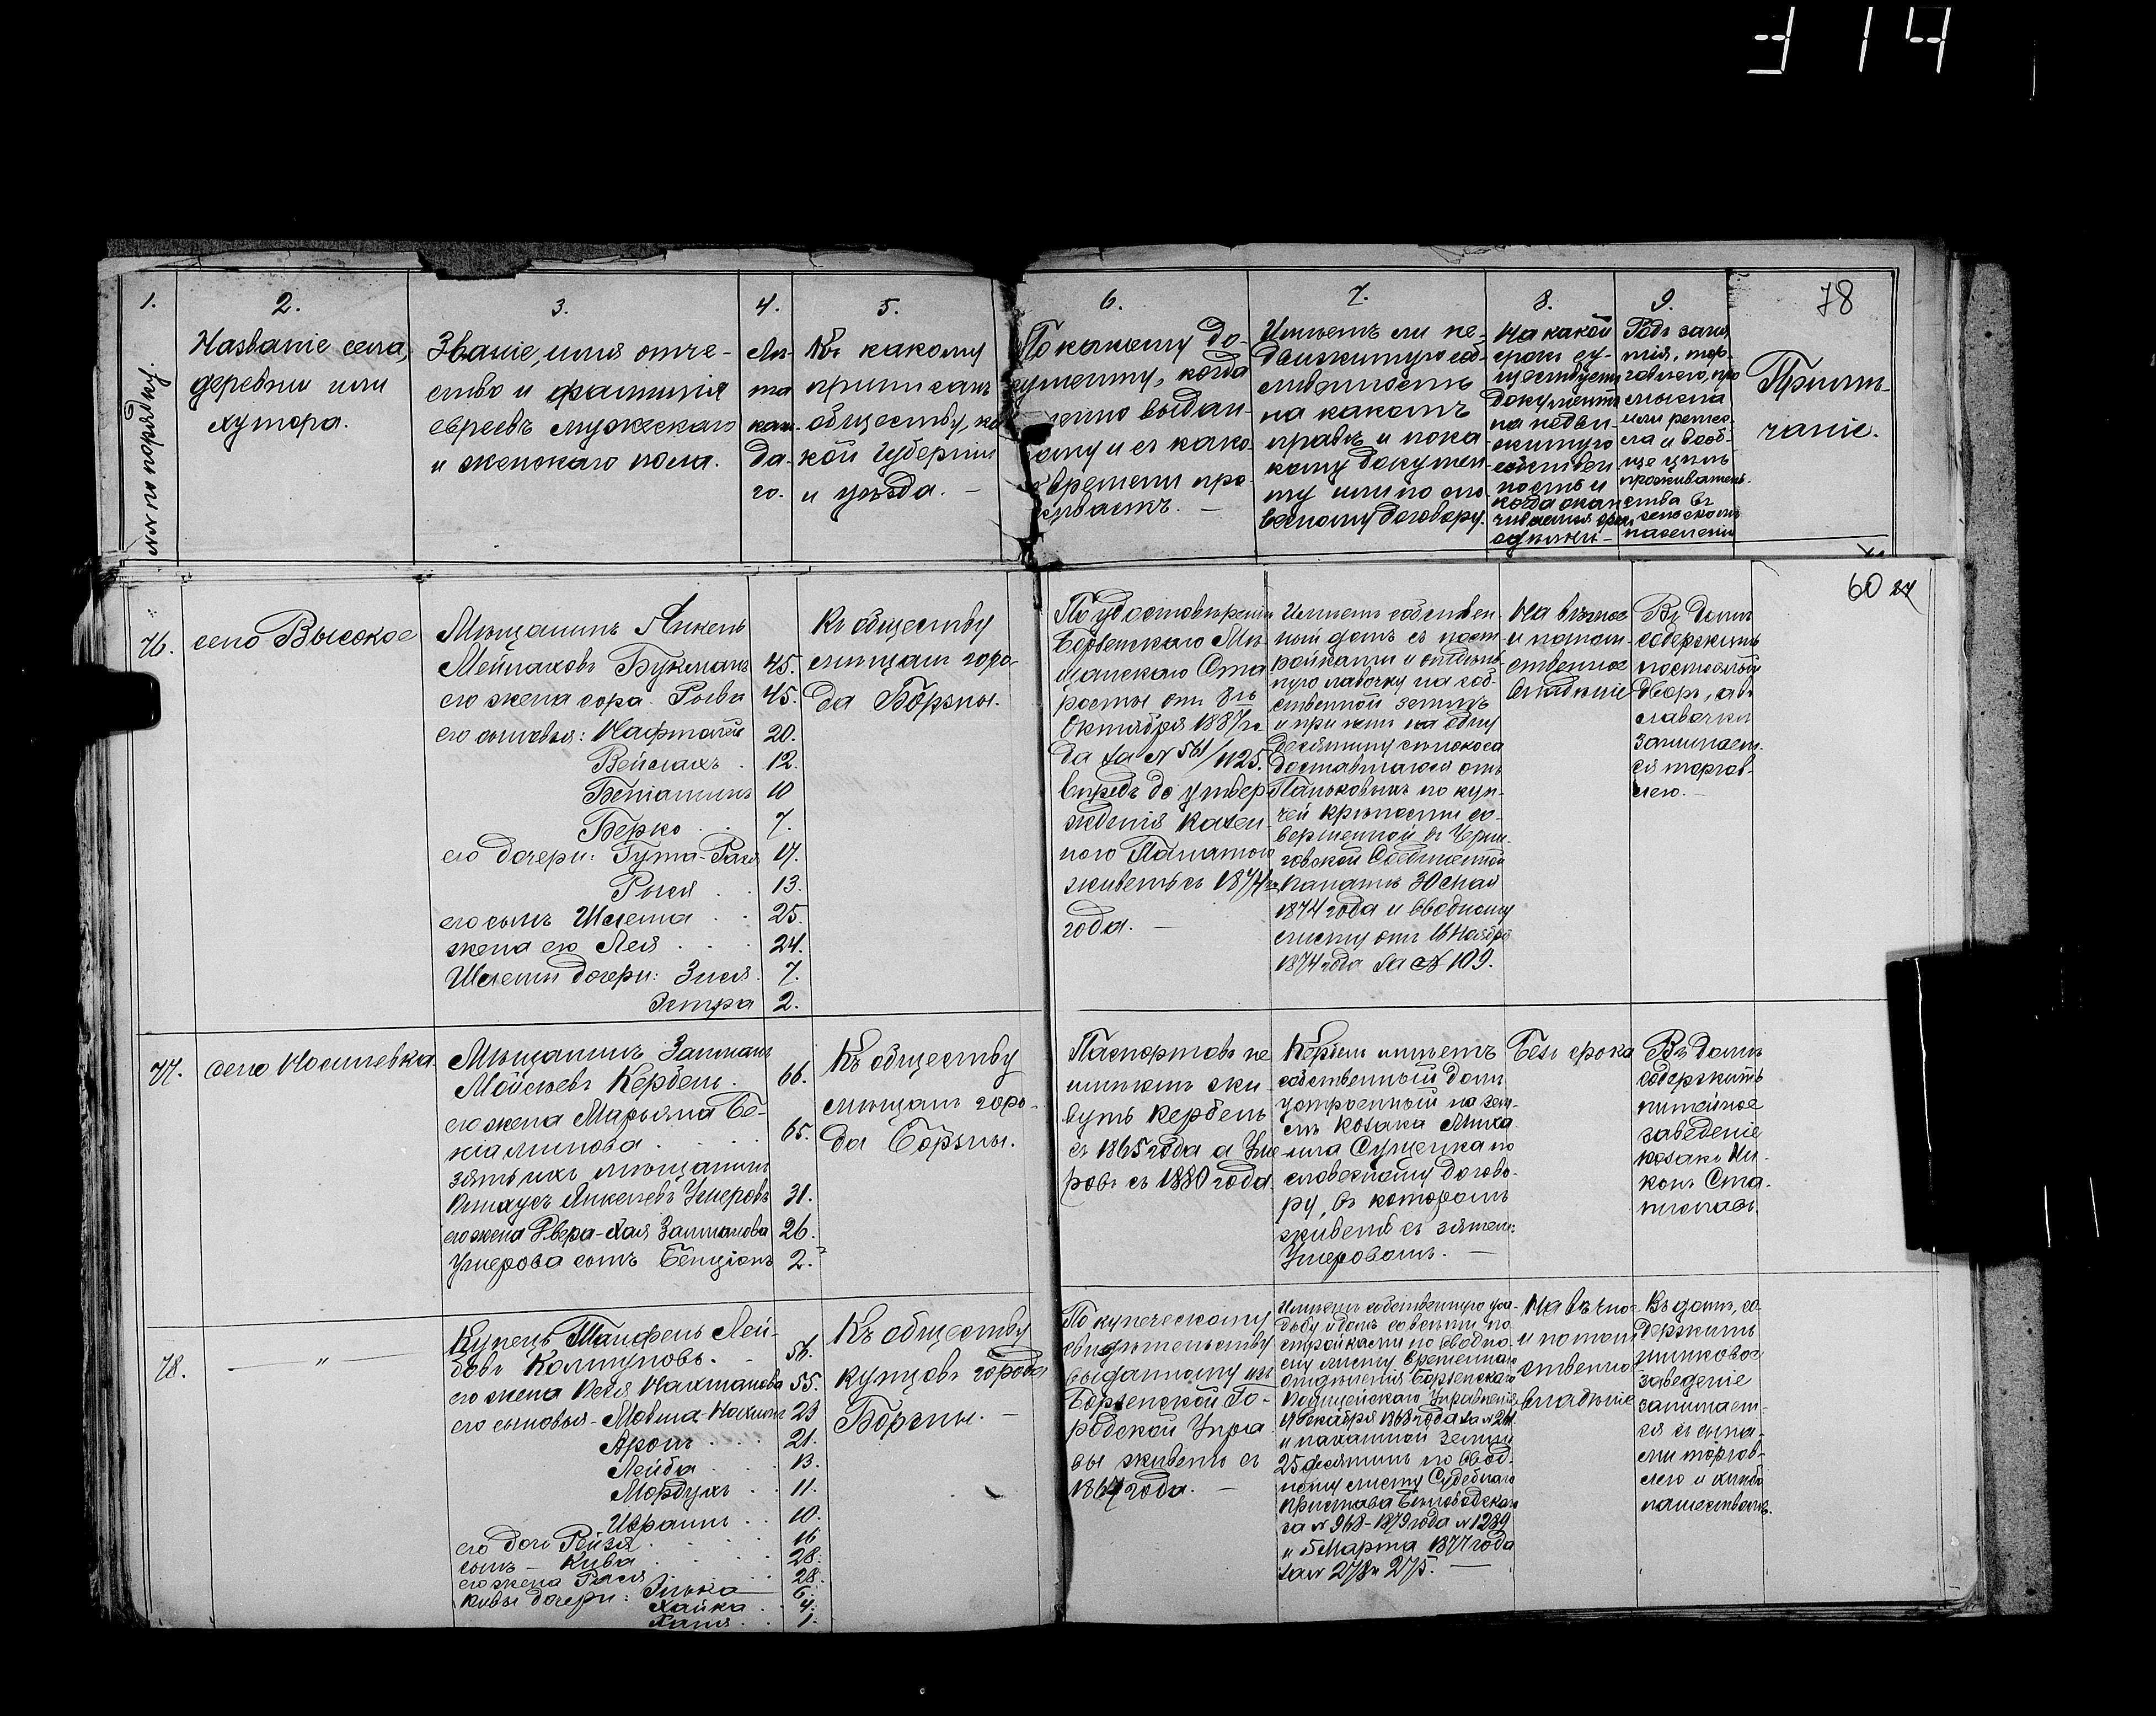 314
78
1.
№№ по порядку.
2.
Названіе села,
деревни или
хутора.
3.
Званіе, имя отче-
ство и фамилія
евреевъ мужскаго
и женскаго пола.
4.
Лѣ-
та
каж-
да-
го.
5.
Къ какому
приписанъ
обществу, ка
кой губерніи
и уѣзда. —
6.
По какому до-
кументу, когда
выдан-
ному и съ како-
времени про-
живаетъ. —
7.
Имѣетъ ли не-
движимую соб-
ственность
на какомъ
правѣ и пока
кому докумен-
ту или по сло-
весному договору.
8.
На какой
срокъ су-
ществуетъ
документъ
на недви-
жимую
собствен
ность и
когда окан
чивается срокъ
9.
Родъ заня
тія, тор-
говлею, про
мысла
или ремес-
ла и вооб-
ще цѣль
проживатель-
ства въ
сельскомъ
населеніи
Примѣ-
чаніе.
60
76.
село Высокое
Мѣщанинъ Янкель
Мейлаховъ Букманъ 45.
его жена Сора-Рыва 45.
его сыновья: Нафтолій 20.
Вейслахъ . 12.
Беніаминъ 10
Берко . . 7.
его дочери: Гута-Рася 17.
Рыся . . 13.
его сынъ Шлема . . 25.
жена его Лея . . . 24.
Шлемы дочери: Зися . 7.
Эстра 2.
Къ обществу
мѣщанъ горо-
да Борзны.
По удостовѣренію
Борзенскаго Мѣ-
щанскаго Ста
росты отъ 8го
Октября 1887 го
да за № 561/1125.
впредь до утвер
жденія Казен-
ною Палатою
живетъ съ 1874го
года. —
Имѣетъ собствен-
ный домъ съ пост
ройками и отдѣль-
ную лавочку на соб-
ственной землѣ
и при немъ на одну
десятину сѣнокоса
доставшаюся отъ
Паньковыхъ по куп-
чей крѣпости со-
вершенной въ Черни-
говской Соединенной
Палатѣ 30 Мая
1874 года и вводному
листу отъ 16 Ноября
1874 года за № 109.
На вѣчное
и потом-
ственное
владѣніе
Въ домѣ
содержитъ
постоялый
дворъ, а въ
лавочкѣ
занимает-
ся торгов-
лею. —
77.
село Носилевка.
Мѣщанинъ Залманъ
Мойсѣевъ Кербель. 66.
его жена Марьяна Бе-
ніаминова . . . . 65.
зять ихъ мѣщанинъ
Янкелевъ Умеровъ 31.
его жена Двера-Хая Залманова 26.
Умерова сынъ Бенціонъ 2.
Къ обществу
мѣщанъ горо-
да Борзны.
Паспортовъ не
имѣютъ жи
вутъ Кербель
съ 1865 года а Уме
ровъ съ 1880 года.
Кербель имѣетъ
собственный домъ
устроенный на зем-
лѣ козака Миха
ила Сущепка по
словесному догово-
ру, въ которомъ
живетъ съ зятемъ
Умеровымъ. —
Безъ срока
Въ домѣ
содержитъ
питейное
заведеніе
козакъ Ни-
конъ Ста-
78.
— " —
Купецъ Танфель Лей-
бовъ Колтуновъ. - 56.
его жена Песя Нахманова 55.
его сыновья - Мовша-Нахманъ 23
Аронъ . . . 21.
Лейба . . . 13.
Мордухъ . . 11.
Израиль . . 10.
его дочь Рейзя . . . . 16
сынъ — Кива . . . . 28.
его жена Рася . . . . 28.
Кивы дочери: Элька — 6.
Хайка . . 4.
Хася . . 1.
Къ обществу
купцовъ города
Борзны. —
По купеческому
свидѣтельству
выданному изъ
Борзенской Го-
родской Упра
вы живетъ съ
1867 года. —
Имѣетъ собственную уса-
дьбу и домъ со всѣми по
стройками по вводно-
му листу Временнаго
отдѣленія Борзенскаго
Полицейскаго Управленія
19 Декабря 1868 года за № 261
и пахатной земли
25 десятинъ по ввод-
ному листу Судебнаго
Пристава
за № 968-1879 года № 1289
и 5 Марта 1877 года
за № 273 и 275. —
На вѣчно-
и потом
ственно
владѣніе
Въ домѣ, со
держитъ
шинковое
заведеніе
занимает-
ся съ сына-
ми торгов-
лею и хлѣбо
пашествомъ.